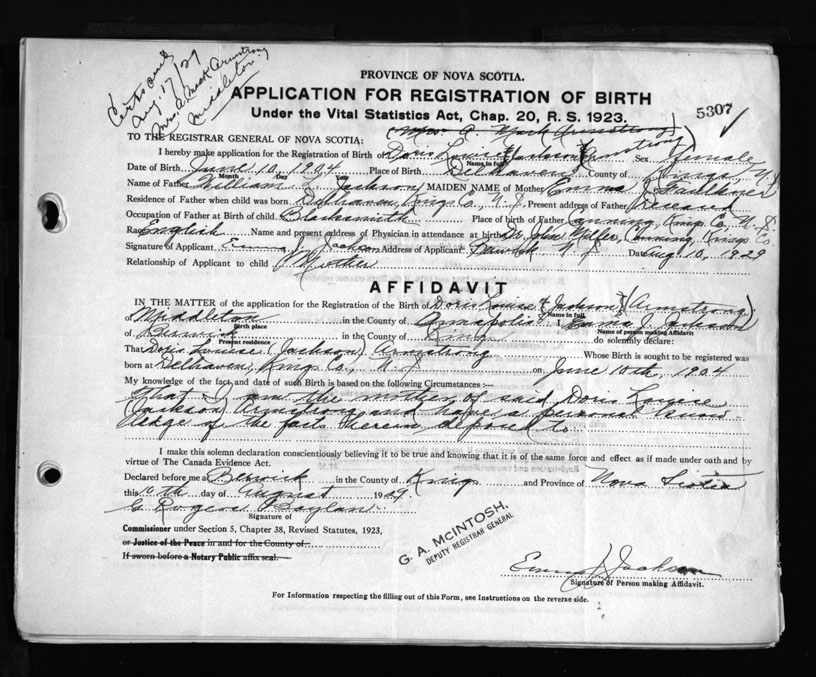 Certs out
Aug. 17/29
Mrs. A. Mack Armstrong
Middleton
PROVINCE OF NOVA SCOTIA.
APPLICATION FOR REGISTRATION OF BIRTH
Under the Vital Statistics Act, Chap. 20, R. S. 1923.
5307
(Mrs. A. Mack Armstrong)
TO THE REGISTRAR GENERAL OF NOVA SCOTIA:
I hereby make application for the Registration of Birth of Doris Louise (Jackson) Armstrong Sex Female
Name in full
Date of Birth June 10, 1904 Place of Birth Delhaven County of Kings, N.S.
Month Day
Name of Father William J. Jackson MAIDEN NAME of Mother Emma J. Faulkner
Residence of Father when child was born Delhaven, Kings Co., N.S. Present address of Father Deceased
Occupation of Father at Birth of child Blacksmith Place of birth of Father Canning, Kings Co., N.S.
Race English Name and present address of Physician in attendance at birth Dr. John Miller, Canning, Kings Co.
Signature of Applicant Emma J. Jackson Address of Applicant Berwick N.S. Date Aug 10, 1929
Relationship of Applicant to child Mother
AFFIDAVIT
IN THE MATTER of the application for the Registration of the Birth of Doris Louise (Jackson) (Armstrong)
Name in full
of Middleton in the County of Annapolis I Emma J. Jackson
Birth place Name of person making Affidavit
of Berwick in the County of Kings do solemnly declare:
Present residence
That Doris Louise (Jackson) Armstrong Whose Birth is sought to be registered was
born at Delhaven, Kings Co., N.S. on June 10th, 1904
My knowledge of the fact and date of such Birth is based on the following Circumstances :—
That I am the mother of said Doris Louise
(Jackson) Armstrong and have a personal know-
ledge of the facts herein deposed to.
I make this solemn declaration conscientiously believing it to be true and knowing that it is of the same force and effect as if made under oath and by
virtue of The Canada Evidence Act.
Declared before me at Berwick in the County of Kings and Province of Nova Scotia
this 10th day of August 1929.
Signature of
Commissioner under Section 5, Chapter 38, Revised Statutes, 1923,
or Justice of the Peace in and for the County of
If sworn before a Notary Public affix seal.
G. A. McINTOSH,
DEPUTY REGISTRAR GENERAL
Emma J. Jackson
Signature of Person making Affidavit.
For Information respecting the filling out of this Form, see Instructions on the reverse side.